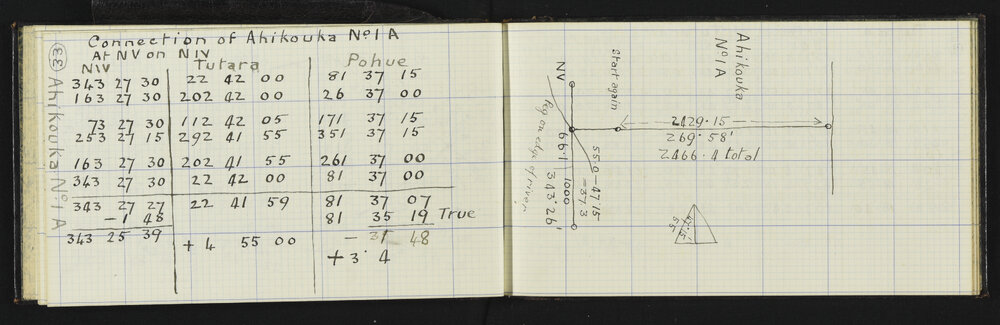 33
Ahikouka No. 1 A
Connection of Ahikouka No. 1 A
At NV on NIV
NIV Tutara Pohue
343 27 30 22 42 00 81 37 15
163 27 30 202 42 00 26 37 00
73 27 30 112 42 05 171 37 15
253 27 15 292 41 55 351 37 15
163 27 30 202 41 55 261 37 00
343 27 30 22 42 00 81 37 00
343 27 27 22 41 59 81 37 07
– 1 48 81 35 19 True
343 25 39 + 4 55 00 – 31 48
+ 3' 4
Ahikouka
No. 1 A
Start again
NV
Peg on edge of river
661
1000
343° 26'
55.0 – 47.15
= 37.3
2429.15
269° 58'
2466.4 total
47.15
55